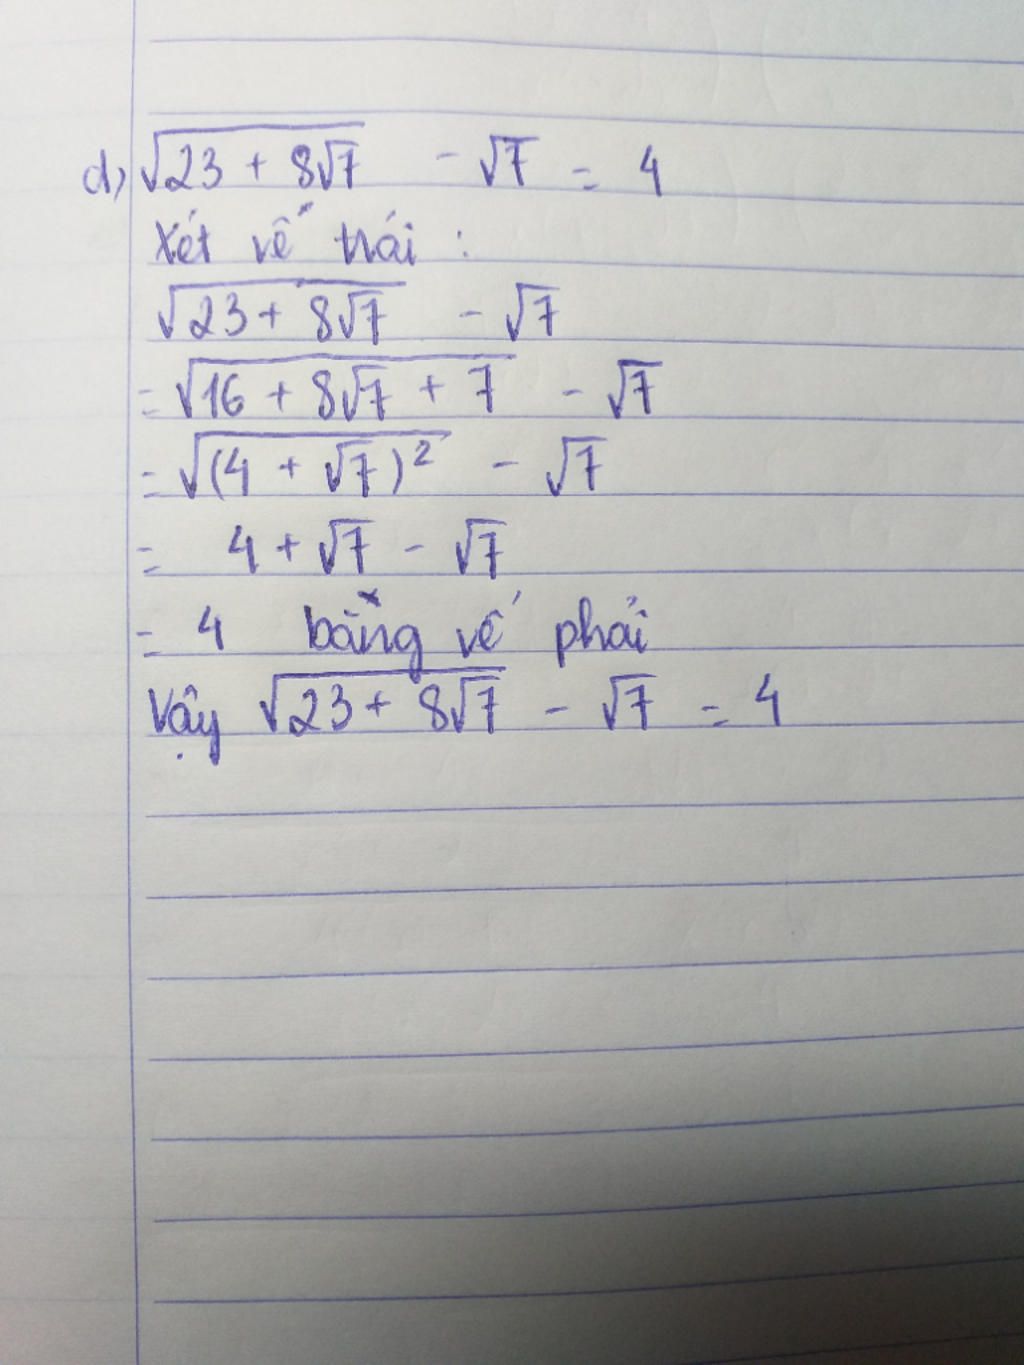 d) √(23 + 8√7) - √7 = 4
Xét vế trái :
√(23 + 8√7) - √7
= √(16 + 8√7 + 7) - √7
= √((4 + √7)²) - √7
= 4 + √7 - √7
= 4 bằng vế phải
Vậy √(23 + 8√7) - √7 = 4